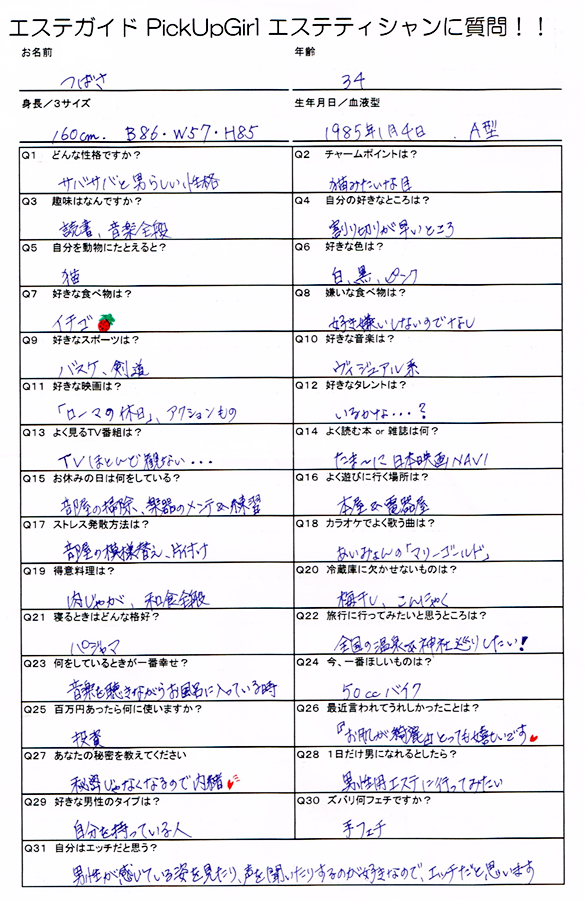 エステガイド PickUpGirl エステティシャンに質問！！
お名前 年齢
つばさ 34
身長／3サイズ 生年月日／血液型
160cm. B86・W57・H85 1985年1月4日 . A型
Q1 どんな性格ですか？ Q2 チャームポイントは？
サバサバと男らしい性格 猫みたいな目
Q3 趣味はなんですか？ Q4 自分の好きなところは？
読書、音楽全般 割り切りが早いところ
Q5 自分を動物にたとえると？ Q6 好きな色は？
猫 白、黒、ピンク
Q7 好きな食べ物は？ Q8 嫌いな食べ物は？
イチゴ 好き嫌いしないのでなし
Q9 好きなスポーツは？ Q10 好きな音楽は？
バスケ、剣道 ヴィジュアル系
Q11 好きな映画は？ Q12 好きなタレントは？
「ローマの休日」、アクションもの いるかな・・・？
Q13 よく見るTV番組は？ Q14 よく読む本 or 雑誌は何？
TVほとんど観ない・・・ たま〜に日本映画NAVI
Q15 お休みの日は何をしている？ Q16 よく遊びに行く場所は？
部屋の掃除、楽器のメンテ&練習 本屋&電器屋
Q17 ストレス発散方法は？ Q18 カラオケでよく歌う曲は？
部屋の模様替え、片付け あいみょんの「マリーゴールド」
Q19 得意料理は？ Q20 冷蔵庫に欠かせないものは？
肉じゃが、和食全般 梅干し、こんにゃく
Q21 寝るときはどんな格好？ Q22 旅行に行ってみたいと思うところは？
パジャマ 全国の温泉&神社巡りしたい！
Q23 何をしているときが一番幸せ？ Q24 今、一番ほしいものは？
音楽を聴きながらお風呂に入っている時 50ccバイク
Q25 百万円あったら何に使いますか？ Q26 最近言われてうれしかったことは？
投資 『お肌が綺麗』とっても嬉しいです
Q27 あなたの秘密を教えてください Q28 1日だけ男になれるとしたら？
秘密じゃなくなるので内緒 男性用エステに行ってみたい
Q29 好きな男性のタイプは？ Q30 ズバリ何フェチですか？
自分を持っている人 手フェチ
Q31 自分はエッチだと思う？
男性が感じている姿を見たり、声を聞いたりするのが好きなので、エッチだと思います